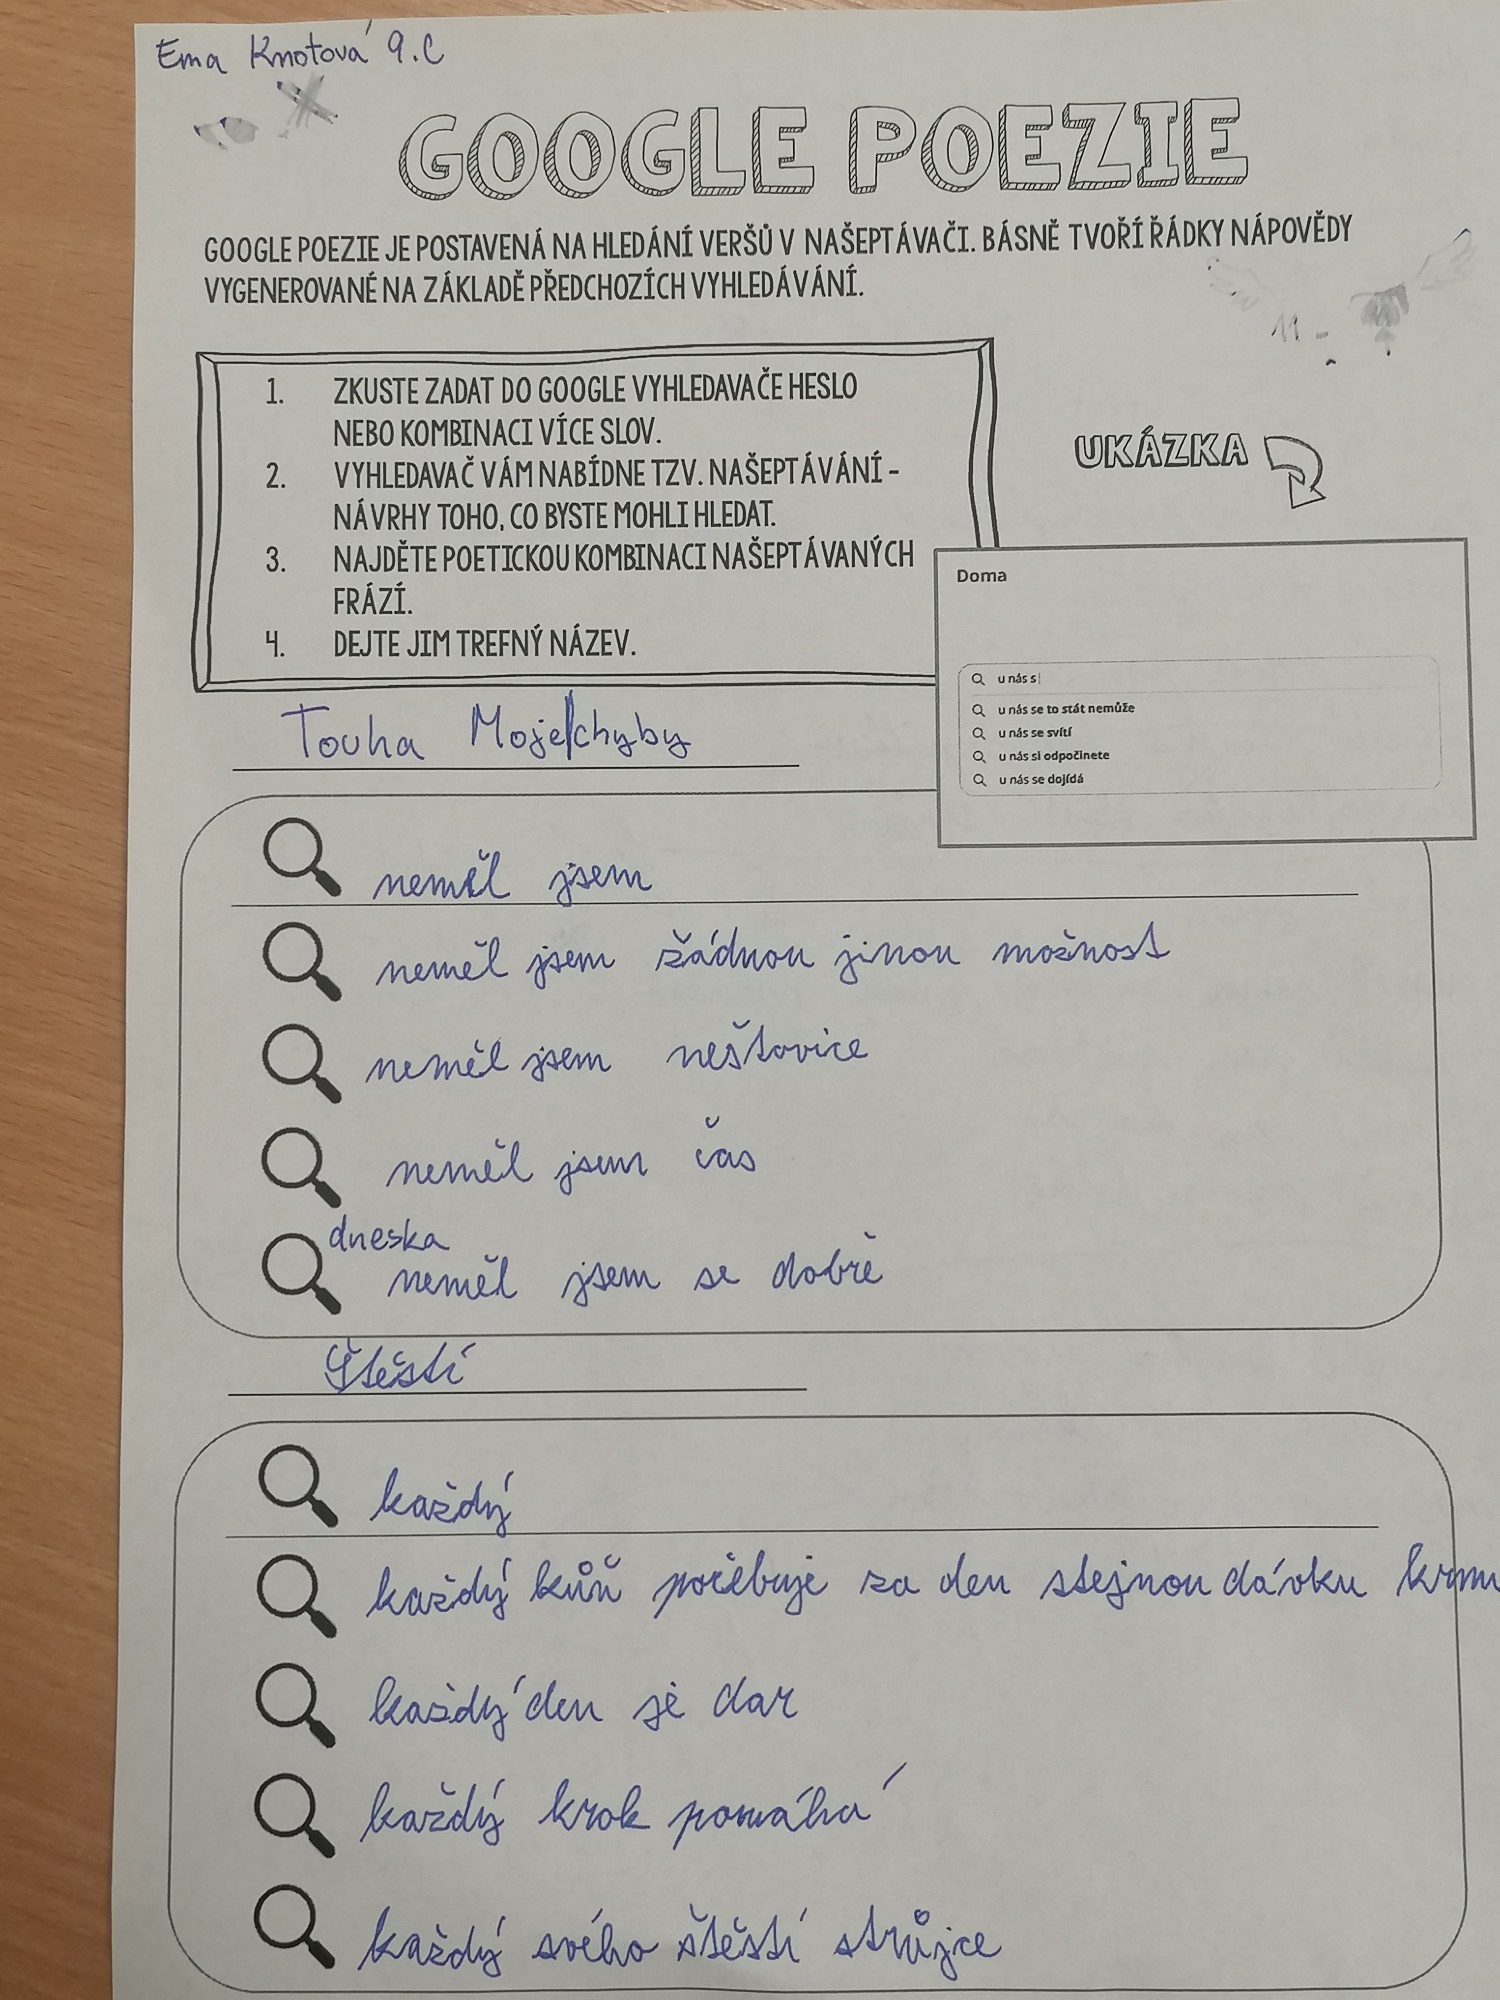 Ema Knotová 9.C
GOOGLE POEZIE
GOOGLE POEZIE JE POSTAVENÁ NA HLEDÁNÍ VERŠŮ V NAŠEPTÁVAČI. BÁSNĚ TVOŘÍ ŘÁDKY NÁPOVĚDY
VYGENEROVANÉ NA ZÁKLADĚ PŘEDCHOZÍCH VYHLEDÁVÁNÍ.
1. ZKUSTE ZADAT DO GOOGLE VYHLEDAVAČE HESLO
NEBO KOMBINACI VÍCE SLOV.
2. VYHLEDAVAČ VÁM NABÍDNE TZV. NAŠEPTÁVÁNÍ -
NÁVRHY TOHO, CO BYSTE MOHLI HLEDAT.
3. NAJDĚTE POETICKOU KOMBINACI NAŠEPTÁVANÝCH
FRÁZÍ.
4. DEJTE JIM TREFNÝ NÁZEV.
UKÁZKA
Doma
u nás s
u nás se to stát nemůže
u nás se svítí
u nás si odpočinete
u nás se dojídá
Touha Moje/chyby
neměl jsem
neměl jsem žádnou jinou možnost
neměl jsem neštovice
neměl jsem čas
dneska
neměl jsem se dobře
Štěstí
každý
každý kůň potřebuje za den stejnou dávku
každý den je dar
každý krok pomáhá
každý svého štěstí strůjce